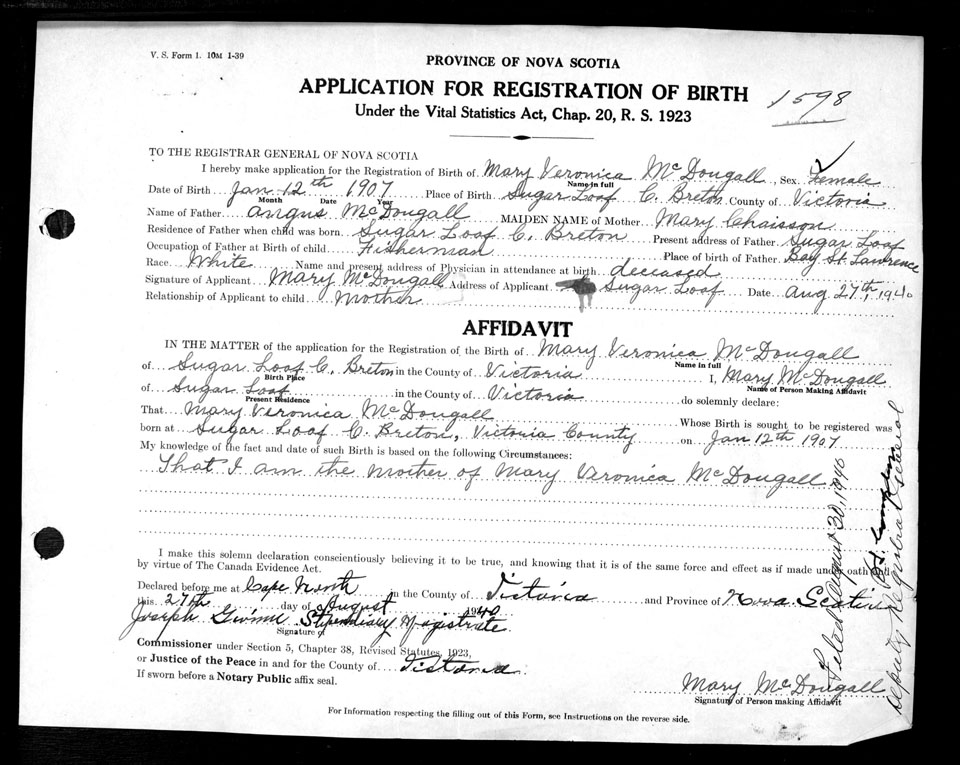 V. S. Form 1. 10M 1-39
PROVINCE OF NOVA SCOTIA
APPLICATION FOR REGISTRATION OF BIRTH
1598
Under the Vital Statistics Act, Chap. 20, R. S. 1923
TO THE REGISTRAR GENERAL OF NOVA SCOTIA
I hereby make application for the Registration of Birth of Mary Veronica McDougall, Sex Female
Name in full
Date of Birth Jan 12th 1907 Place of Birth Sugar Loaf C. Breton County of Victoria
Month Date Year
Name of Father Angus McDougall MAIDEN NAME of Mother Mary Chaisson
Residence of Father when child was born Sugar Loaf C. Breton Present address of Father Sugar Loaf
Occupation of Father at Birth of child Fisherman Place of birth of Father Bay St. Lawrence
Race White Name and present address of Physician in attendance at birth deceased
Signature of Applicant Mary McDougall Address of Applicant Sugar Loaf Date Aug 27th, 1940
Relationship of Applicant to child Mother
AFFIDAVIT
IN THE MATTER of the application for the Registration of the Birth of Mary Veronica McDougall
Name in full
of Sugar Loaf C. Breton in the County of Victoria I, Mary McDougall
Birth Place Name of Person Making Affidavit
of Sugar Loaf in the County of Victoria do solemnly declare:
Present Residence
That Mary Veronica McDougall Whose Birth is sought to be registered was
born at Sugar Loaf C. Breton, Victoria County on Jan 12th 1907
My knowledge of the fact and date of such Birth is based on the following Circumstances:
That I am the mother of Mary Veronica McDougall
I make this solemn declaration conscientiously believing it to be true, and knowing that it is of the same force and effect as if made under oath and
by virtue of The Canada Evidence Act.
Declared before me at Cape North in the County of Victoria and Province of Nova Scotia
this 27th day of August 1940
Joseph Stipendiary Magistrate
Signature of
Commissioner under Section 5, Chapter 38, Revised Statutes, 1923,
or Justice of the Peace in and for the County of Victoria
If sworn before a Notary Public affix seal.
Mary McDougall
Signature of Person making Affidavit
For Information respecting the filling out of this Form, see Instructions on the reverse side.
Filed August 30, 1940
Deputy Registrar General